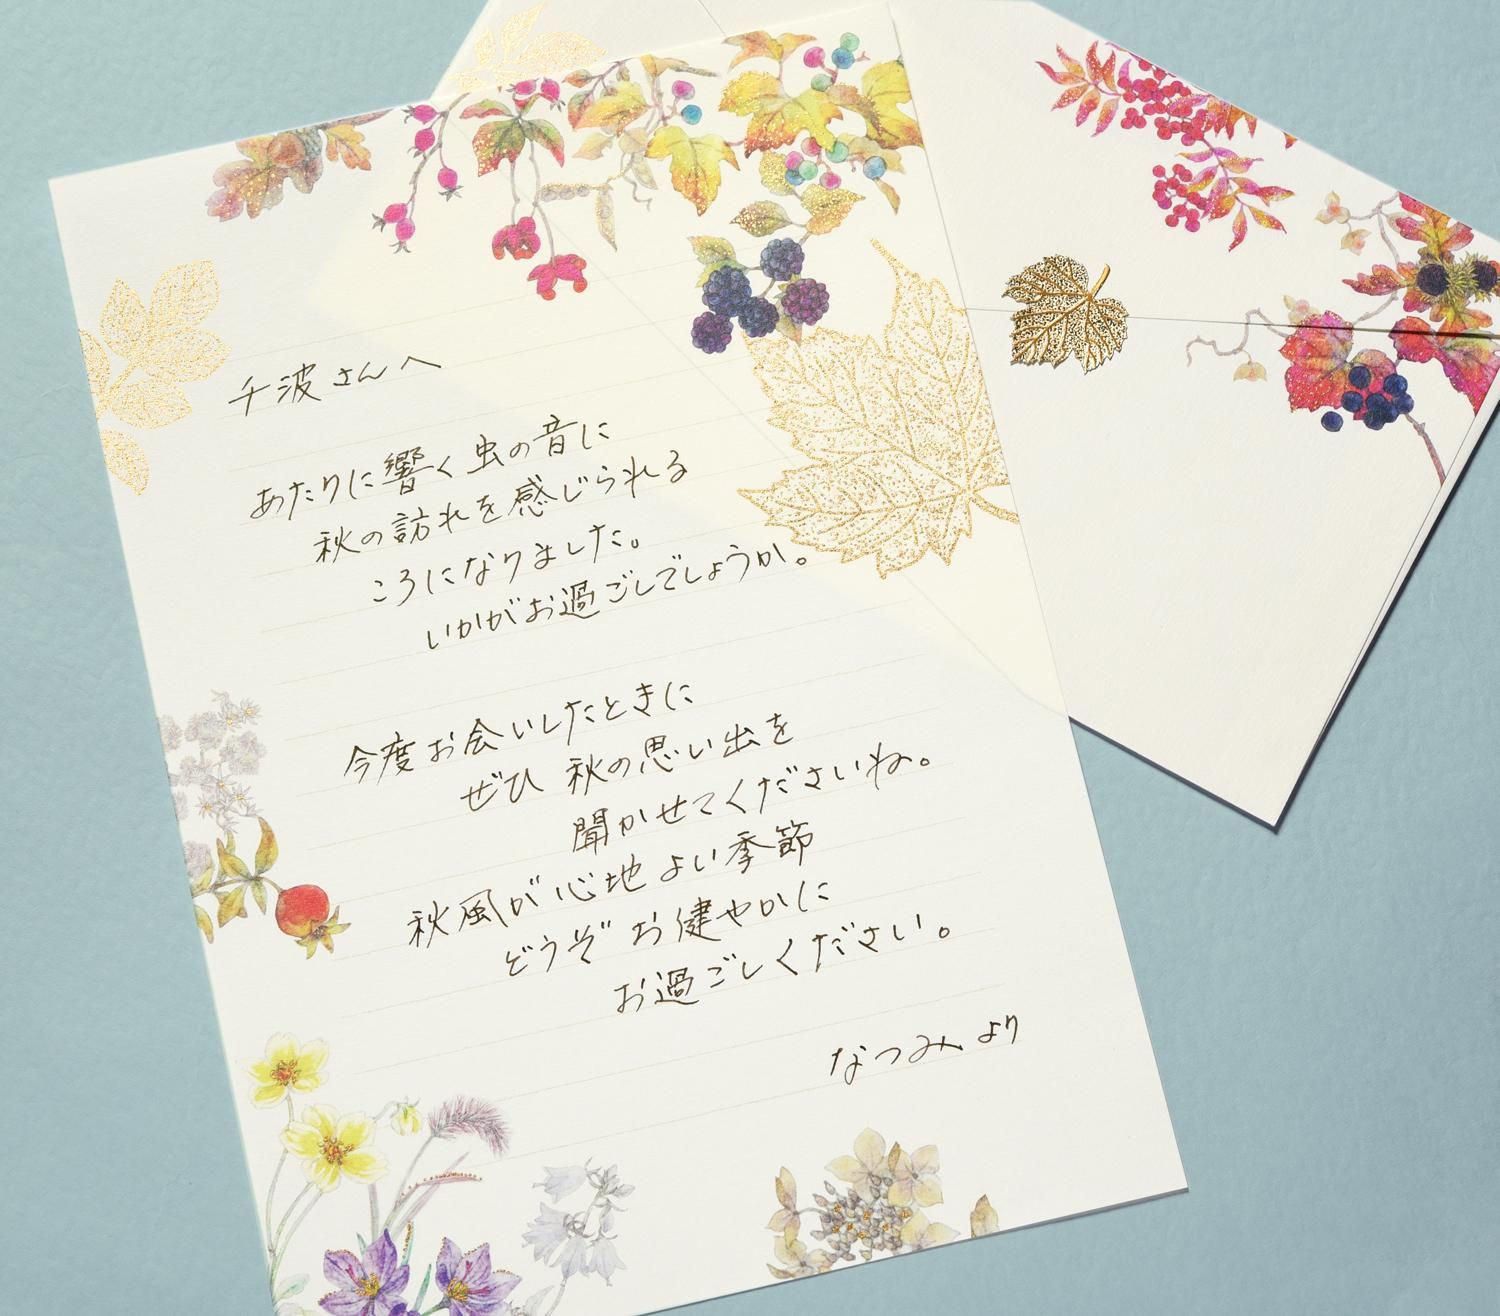 千波さんへ
あたりに響く虫の音に
秋の訪れを感じられる
ころになりました。
いかがお過ごしでしょうか。
今度お会いしたときに
ぜひ 秋の思い出を
聞かせてくださいね。
秋風が心地よい季節
どうぞ お健やかに
お過ごしください。
なつみより